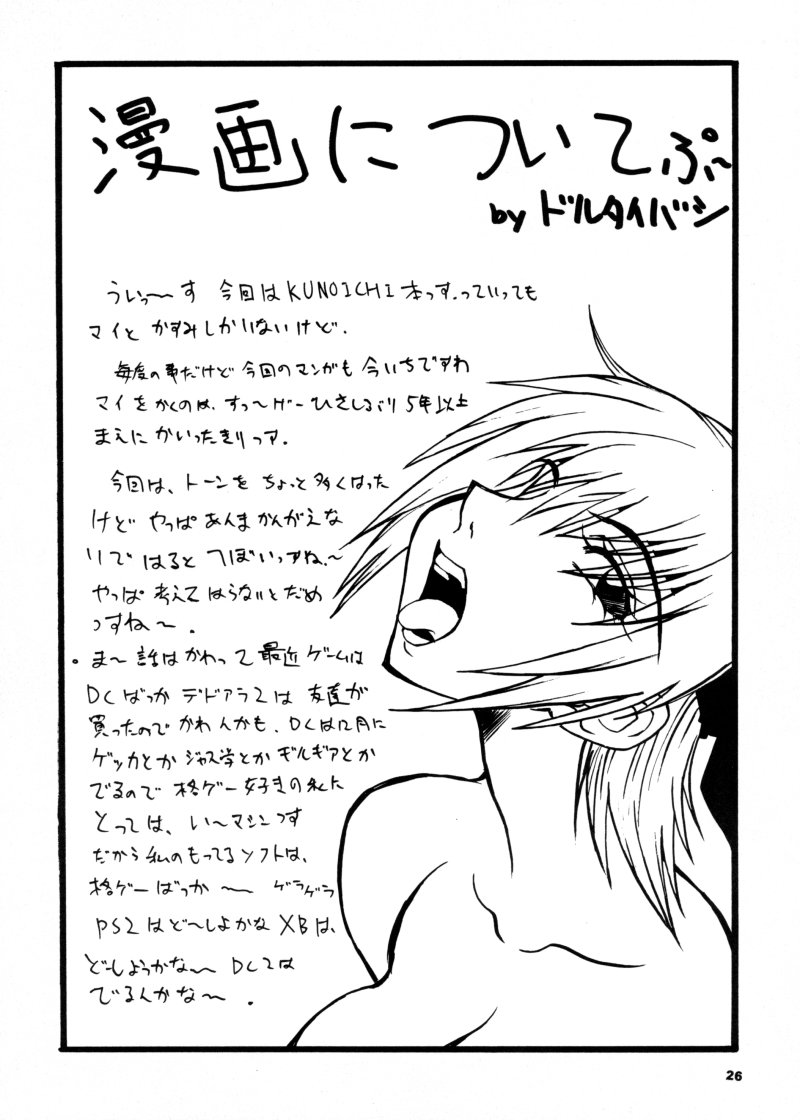 漫画についてぷ〜
by ドルタイバシ
ういっ〜す 今回はKUNOICHI本っす.っていっても
マイと かすみしかいないけど.
毎度の事だけど 今回のマンガも 今いちですわ
マイをかくのは、すっ〜げー ひさしぶり 5年以上
まえに かいったきりっス.
今回は、トーンを ちょっと多くはった
けど やっぱ あんま かんがえな
いで はると つぼいっスね.〜
やっぱ 考えて はらないと だめ
っすね〜.
・ま〜 話はかわって 最近 ゲームは
DCばっか デドアラ2は 友達が
買ったので かわんかも、DCは12月に
ゲッカとか ジャス学とか ギルギアとか
でるので 格ゲー 好きの 私に
とっては、い〜マシンっす
だから 私のもってるソフトは、
格ゲーばっか 〜 ゲラゲラ
PS2はど〜しよかな XBは、
ど〜しようかな〜 DC2は
でるんかな〜.
26